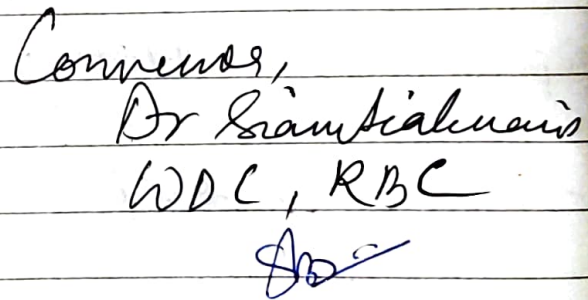 Convenor,
Dr Siamtiahmuais
WDC, RBC